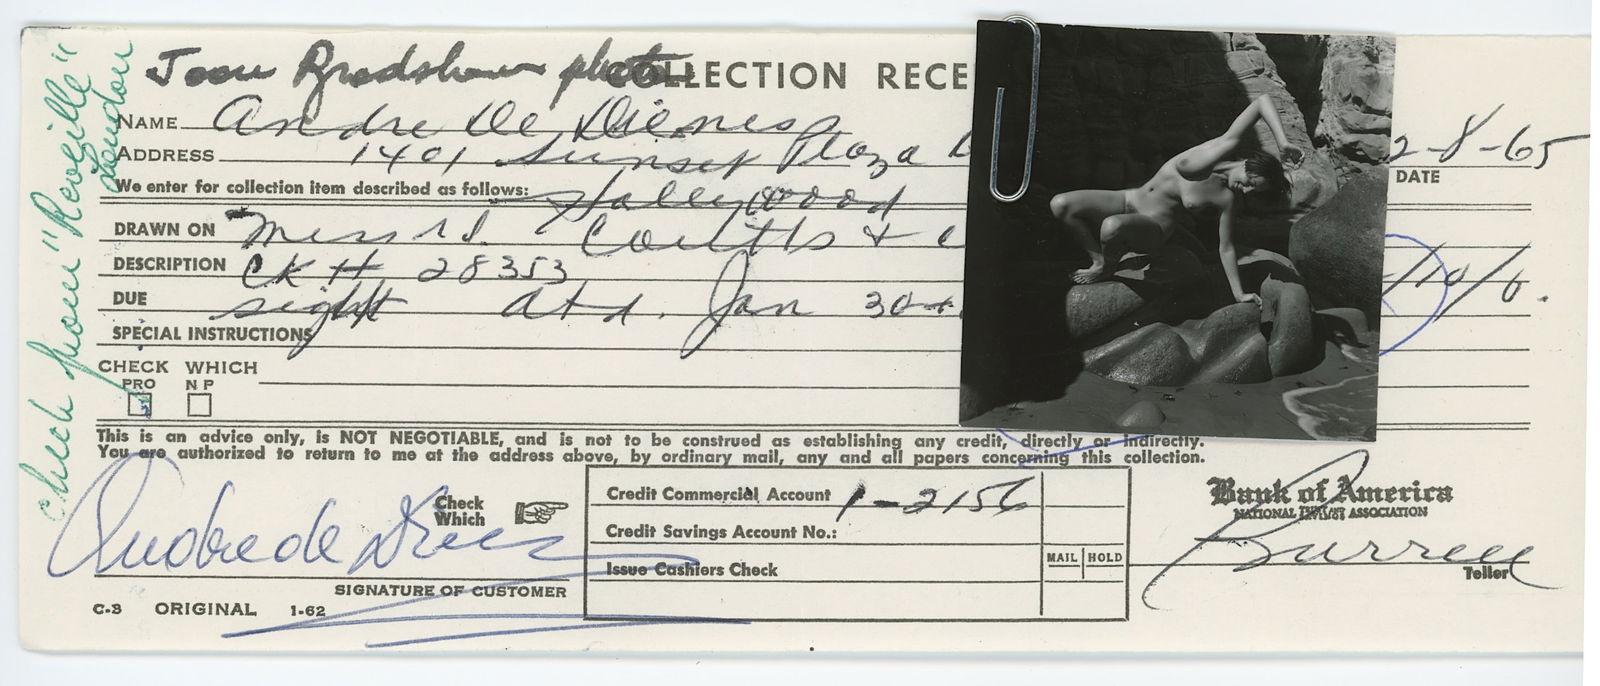 Joan Bradshaw photo
COLLECTION RECE
NAME Andre De Dienes
ADDRESS 1401 Sunset Plaza D
2-8-65
DATE
We enter for collection item described as follows: Hollywood
DRAWN ON Messrs. Coutts & C
DESCRIPTION CK # 28353
/10/6.
DUE sight Atd. Jan 30th
SPECIAL INSTRUCTIONS
CHECK WHICH
PRO NP
This is an advice only, is NOT NEGOTIABLE, and is not to be construed as establishing any credit, directly or indirectly.
You are authorized to return to me at the address above, by ordinary mail, any and all papers concerning this collection.
Check from "Reveille"
London
Andre de Dienes
Check
Which
SIGNATURE OF CUSTOMER
C-3 ORIGINAL 1-62
Credit Commercial Account 1-2156
Credit Savings Account No.:
Issue Cashiers Check
MAIL HOLD
Bank of America
NATIONAL TRUST AND SAVINGS ASSOCIATION
Burrell
Teller